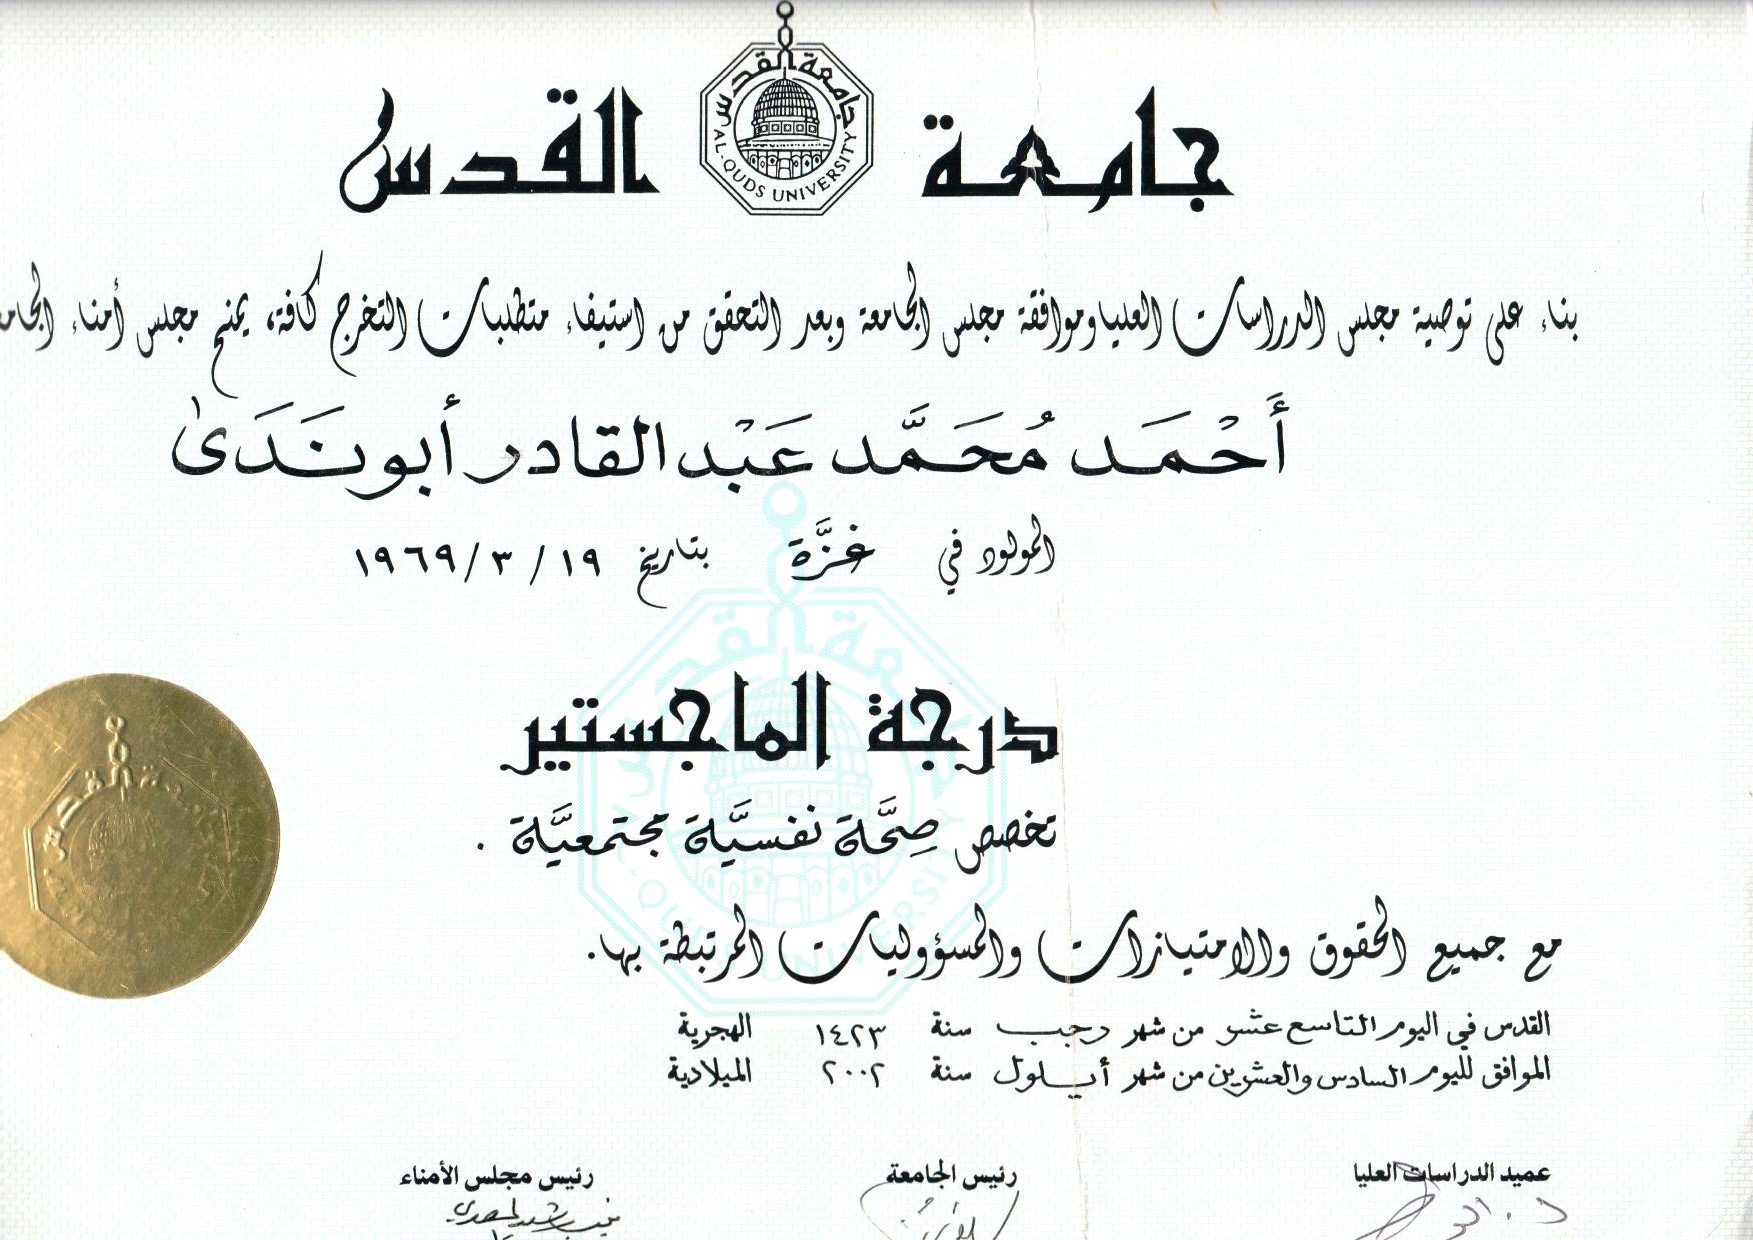 جامعة القدس
جامعة القدس
AL-QUDS UNIVERSITY
بناء على توصية مجلس الدراسات العليا وموافقة مجلس الجامعة وبعد التحقق من استيفاء متطلبات التخرج كافة، يمنح مجلس أمناء الجامع
أَحْمَد مُحَمَّد عَبْد القادر أبو نَدَىٰ
المولود في غزَّة بتاريخ ١٩ / ٣ / ١٩٦٩
درجة الماجستير
تخصص صِحَّة نفسيَّة مجتمعيَّة .
مع جميع الحقوق والامتيازات والمسؤوليات المرتبطة بها.
القدس في اليوم التاسع عشر من شهر رجب سنة ١٤٢٣ الهجرية
الموافق لليوم السادس والعشرين من شهر أيلول سنة ٢٠٠٢ الميلادية
عميد الدراسات العليا رئيس الجامعة رئيس مجلس الأمناء